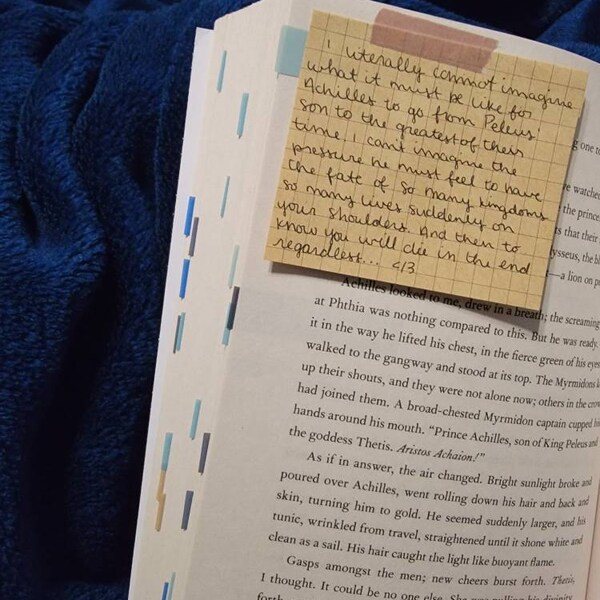 I literally cannot imagine
what it must be like for
Achilles to go from Peleus'
son to the greatest of their
time I can't imagine the
pressure he must feel to have
the fate of so many kingdoms
so many lives suddenly on
your shoulders. And then to
know you will die in the end
regardless... </3
g one to
ve watched
the prince
ts that their
ysseus, the bl
—a lion on p
Achilles looked to me, drew in a breath; the screaming
at Phthia was nothing compared to this. But he was ready.
it in the way he lifted his chest, in the fierce green of his eyes
walked to the gangway and stood at its top. The Myrmidons k
up their shouts, and they were not alone now; others in the crow
had joined them. A broad-chested Myrmidon captain cupped his
hands around his mouth. “Prince Achilles, son of King Peleus and
the goddess Thetis. Aristos Achaion!”
As if in answer, the air changed. Bright sunlight broke and
poured over Achilles, went rolling down his hair and back and
skin, turning him to gold. He seemed suddenly larger, and his
tunic, wrinkled from travel, straightened until it shone white and
clean as a sail. His hair caught the light like buoyant flame.
Gasps amongst the men; new cheers burst forth. Thetis,
I thought. It could be no one else. She was pulling his divinity
forth